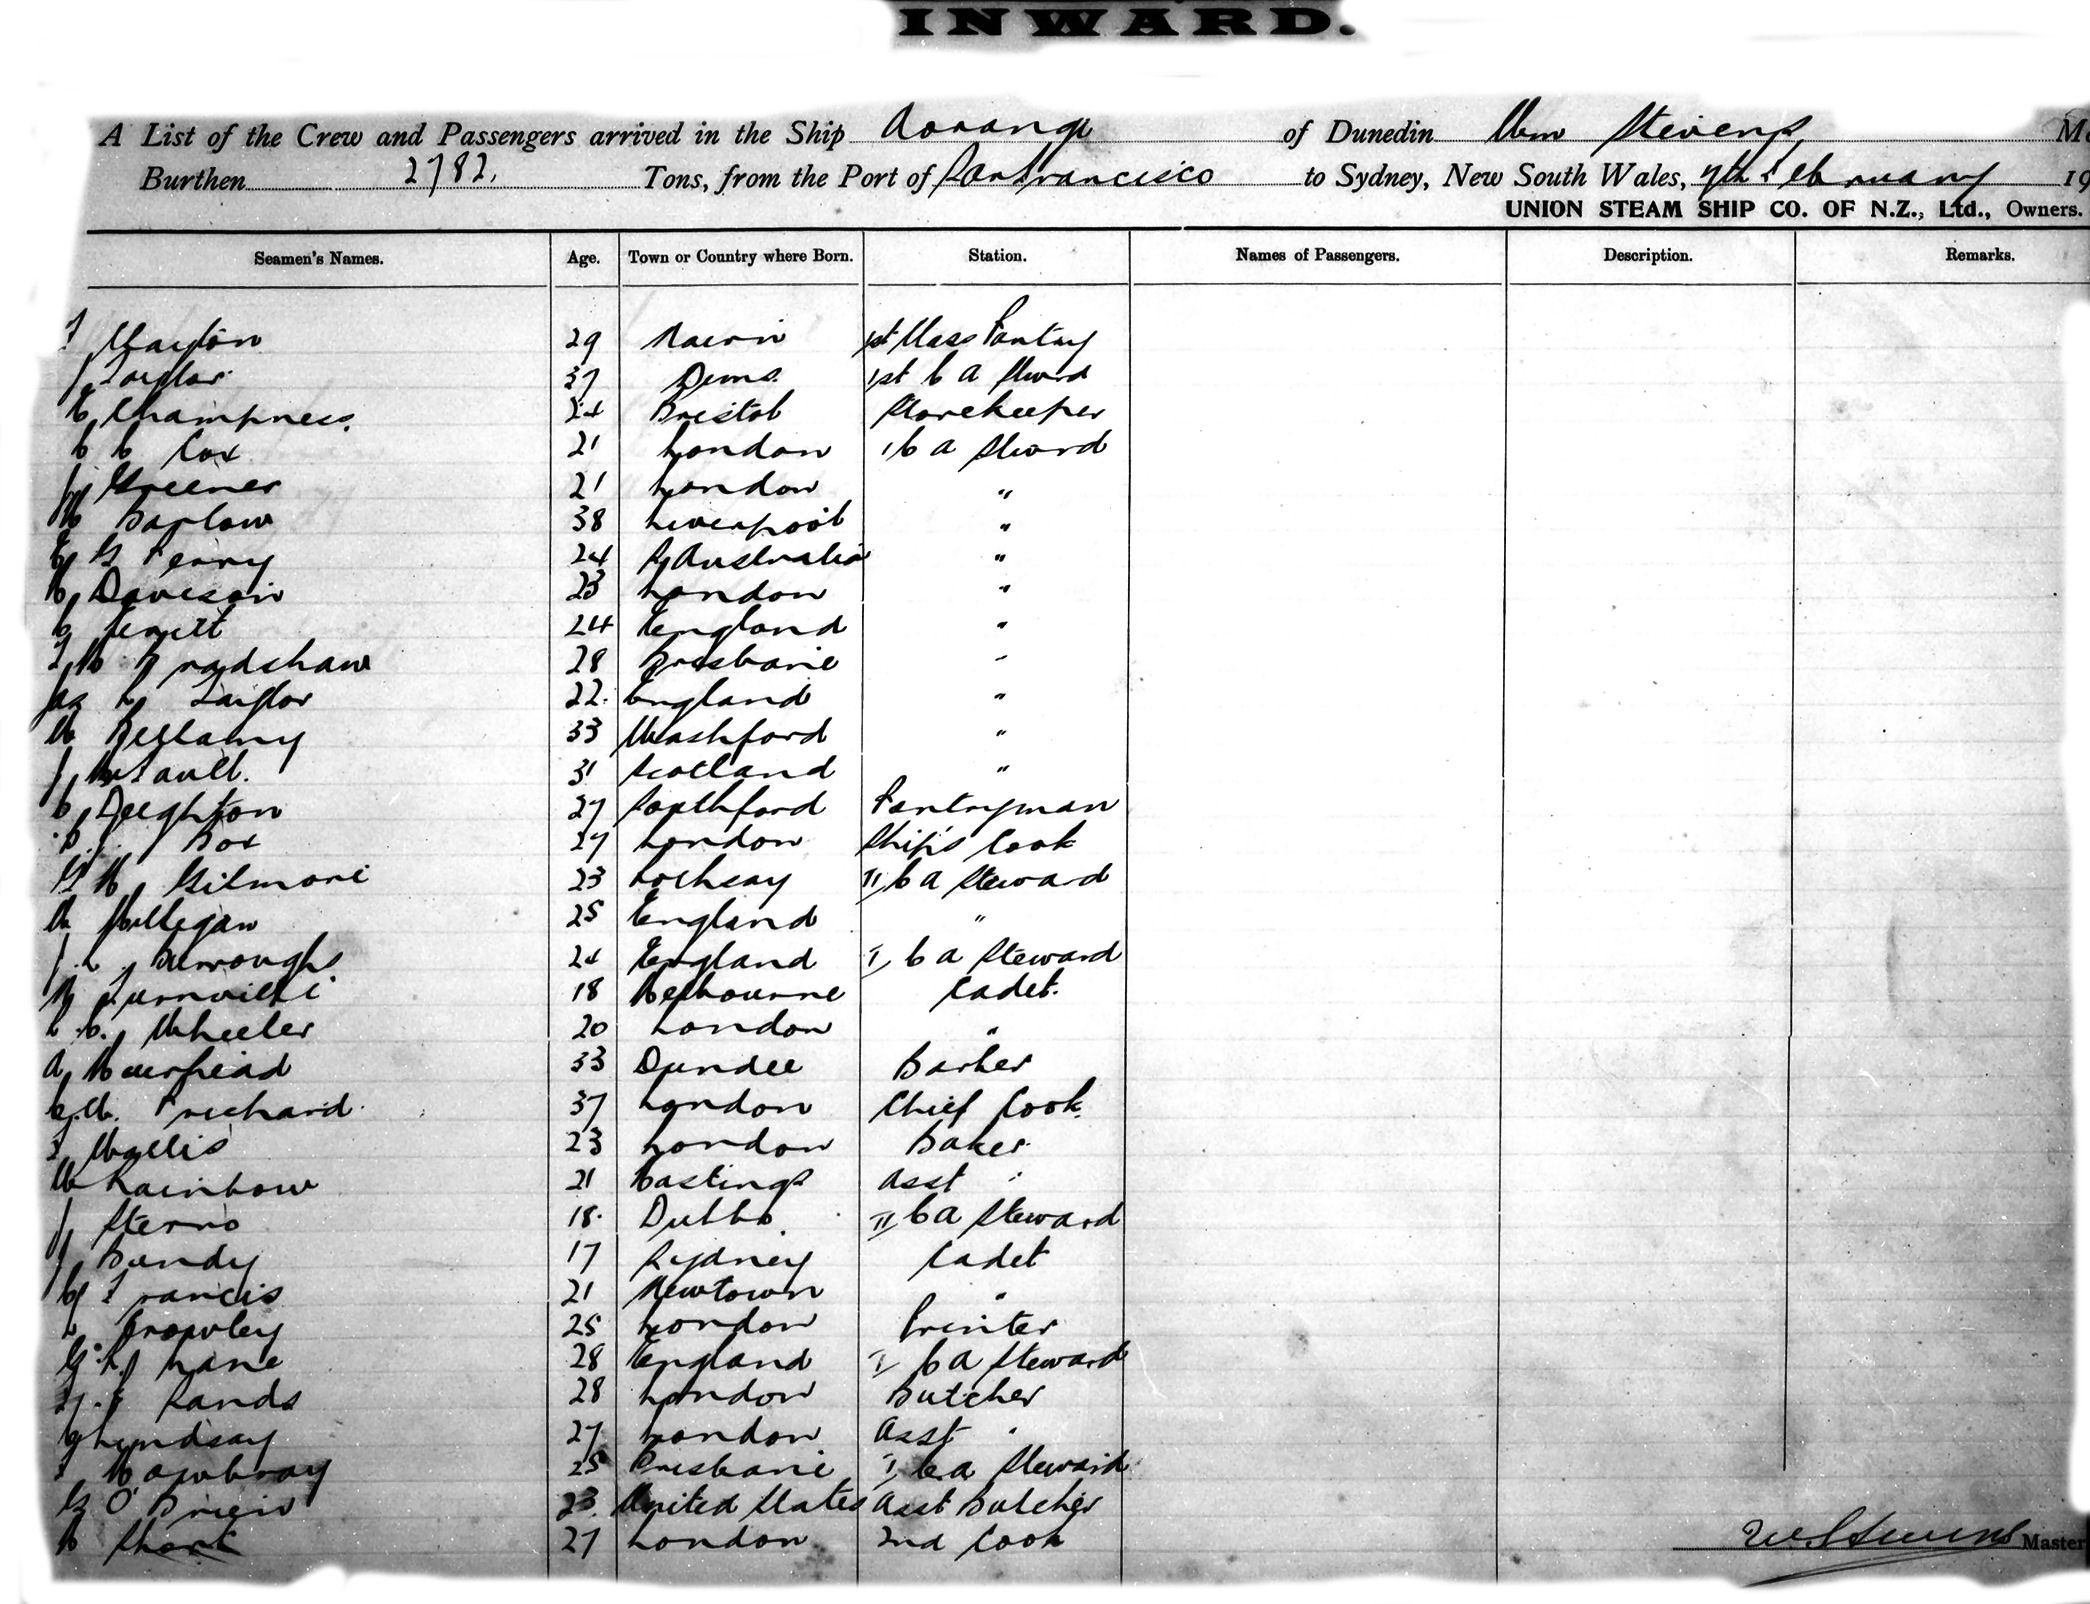 INWARD.
A List of the Crew and Passengers arrived in the Ship Aorangi of Dunedin Wm Stevens
Burthen 2782. Tons, from the Port of San Francisco to Sydney, New South Wales, 7th February 19
UNION STEAM SHIP CO. OF N.Z., Ltd., Owners.
Seamen's Names. Age. Town or Country where Born. Station. Names of Passengers. Description. Remarks.
Clayton 29 Nairn 1st Class Pantry
J Taylor 37 1st C A Steward
Champness. 24 Bristol Storekeeper
C C Cox 21 London 1 C A Steward
Greener 21 London "
Barlow 38 Liverpool "
G Perry 24 S Australia "
H Davison 23 London "
24 England "
F H Bradshaw 28 Brisbane "
Jas L Taylor 22. England "
W Bellamy 33 Washford "
J 31 Scotland "
C Deighton 27 Southford Pantryman
Box 27 London Ship's Cook
G H Gilmore 23 Rothsay II C A Steward
W Milligan 25 England "
J. L. Burroughs 24 England I C A Steward
18 Melbourne Cadet.
L. C. Wheeler 20 London "
A Muirhead 33 Dundee Barber
C. W. Prichard 37 London Chief Cook.
F Wallis 23 London Baker
W Rainbow 21 Hastings Asst "
J Sterno 18. Dubbo. II C A Steward
J Bundy 17 Sydney Cadet
C Francis 21 Newtown "
L Crowley 25 London Printer
G. L. Lane 28 England I C A Steward
Sands 28 London Butcher
Lyndsay 27 London Asst "
Mowbray 25 Brisbane I C A Steward
G O'Brien 23. United States Asst Butcher
H Short 27 London 2nd Cook
W Stevens Master